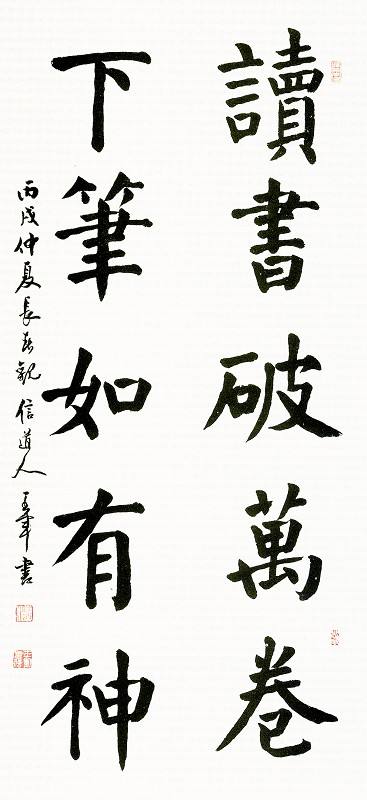 讀書破萬卷
下筆如有神
丙戌仲夏長春觀信道人王軍書